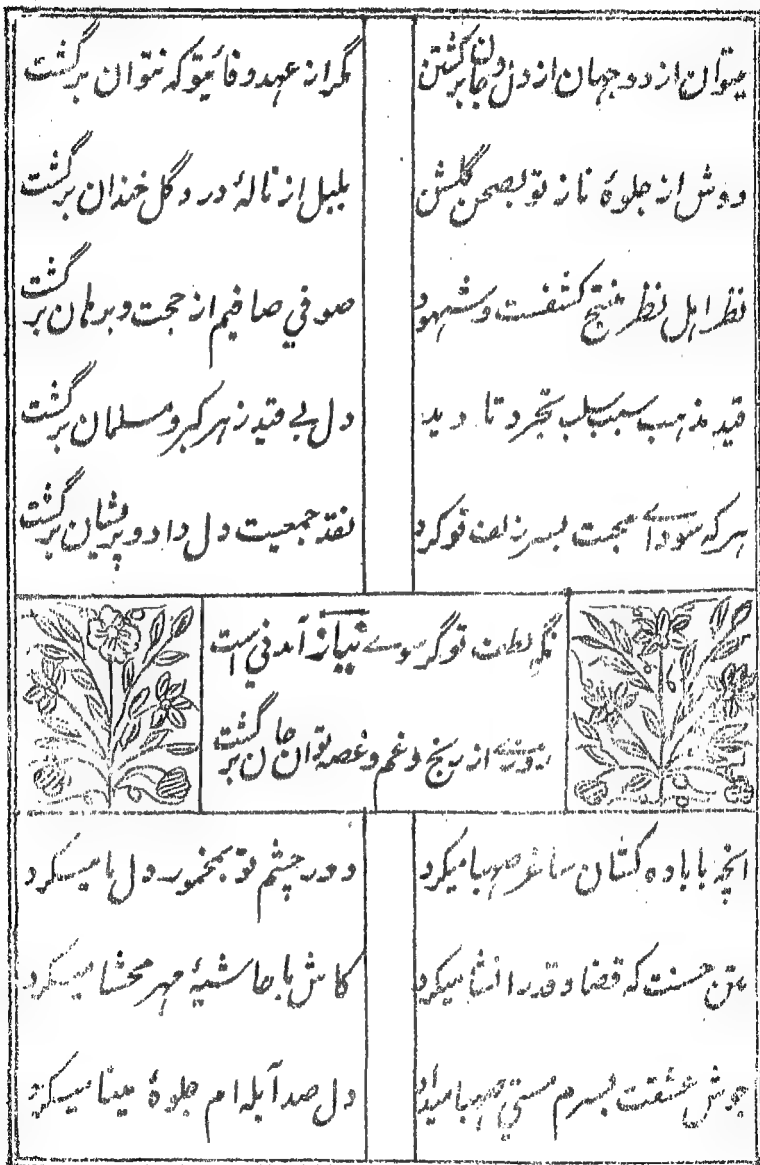 میتوان از دو جهان از دل و جان برگشتن
مگر از عهد وفائیتو که نتوان برگشت
دوش از جلوهٔ ناز تو بصحن گلشن
بلبل از نالهٔ درد و گل خندان برگشت
نظر اهل نظر منتج کشفست و شهود
صوفی صافیم از حجت و برهان برگشت
قید مذهب سبب سلب تجرد تا دید
دل بے قید ز هر گبر و مسلمان برگشت
هر که سوداے محبت بسر زلف تو کرد
نقد جمعیت دل داد و پریشان برگشت
نگه لطف تو گر سوے نیاز آمدنی است
از رنج و غم و غصه توان جان برگشت
انچه با باده کشان ساغر صهبا میکرد
دور چشم تو بمخمور دل ما میکرد
متن حسنت که قضا و قدر انشا میکرد
کاش با حاشیهٔ مهر محشا میکرد
جوش عشقت بسرم مستی صهبا میداد
دل صد آبله ام جلوهٔ مینا میکرد